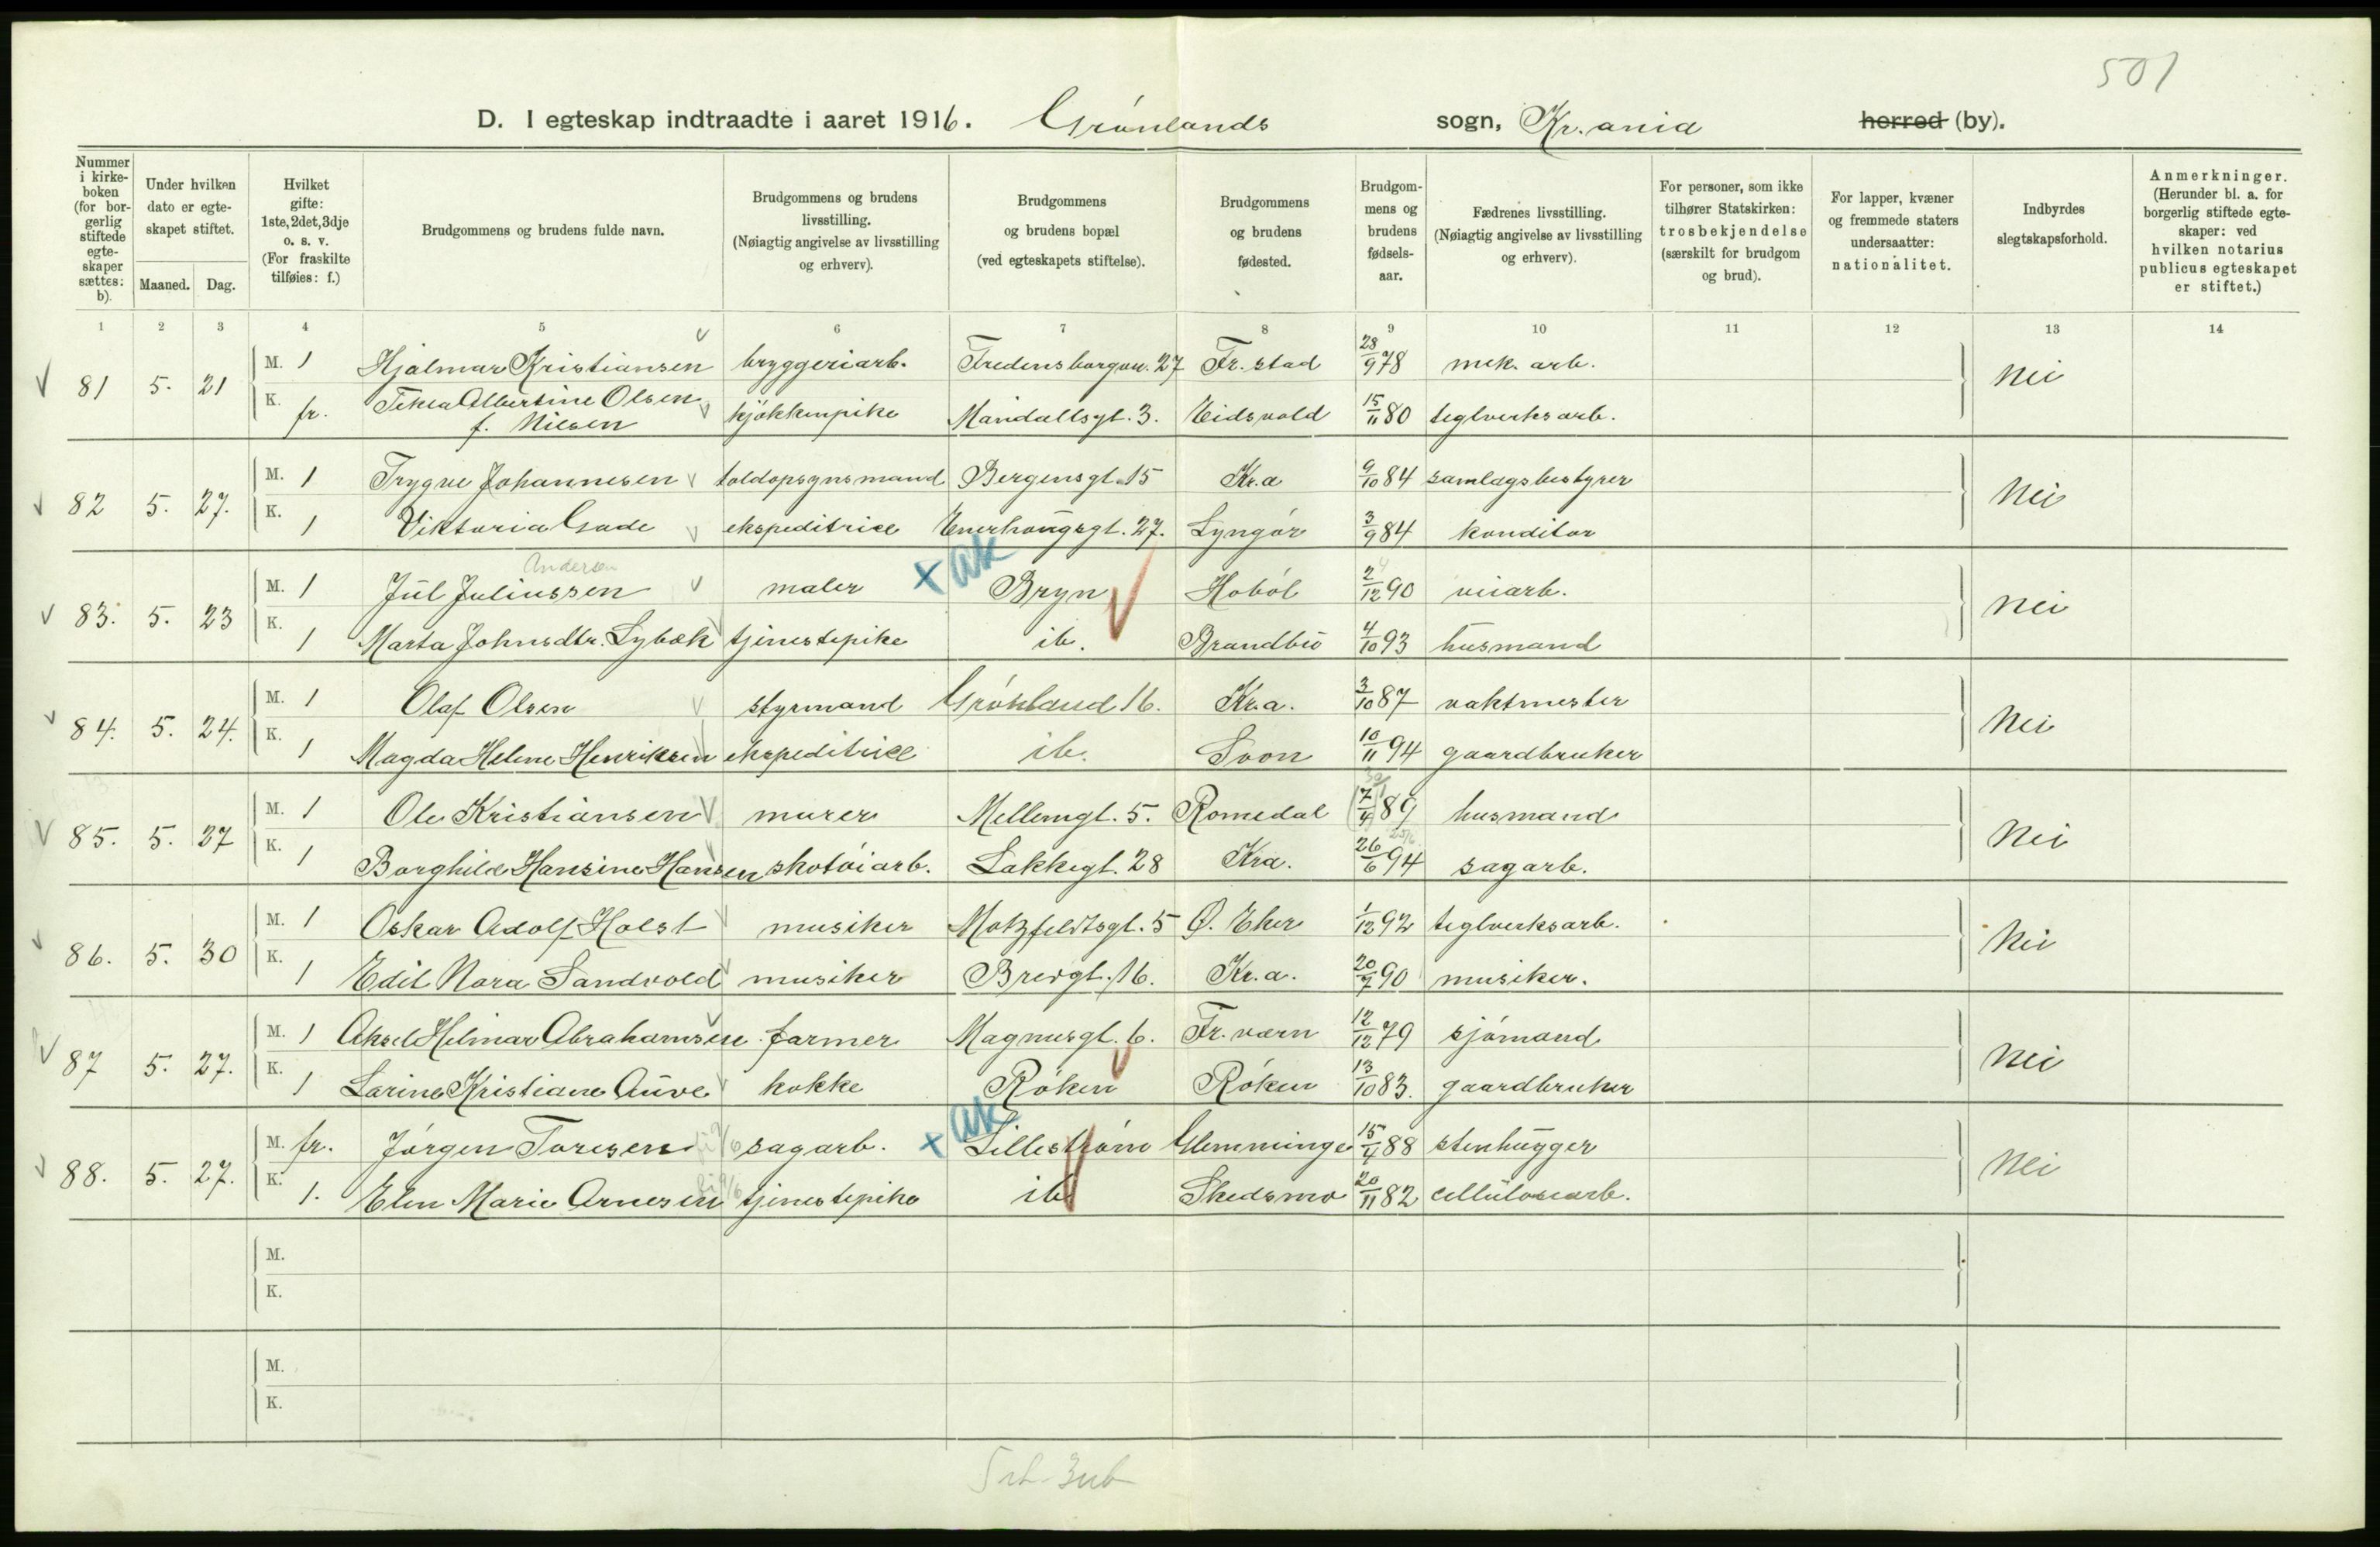 501
D. I egteskap indtraadte i aaret 1916. Grønlands sogn, Kr.ania herred (by).
Nummer i kirkeboken (for borgerlig stiftede egteskaper sættes: b).
Under hvilken dato er egteskapet stiftet.
Maaned. Dag.
Hvilket gifte: 1ste, 2det, 3dje o. s. v. (For fraskilte tilføies: f.)
Brudgommens og brudens fulde navn.
Brudgommens og brudens livsstilling. (Nøiagtig angivelse av livsstilling og erhverv).
Brudgommens og brudens bopæl (ved egteskapets stiftelse).
Brudgommens og brudens fødested.
Brudgommens og brudens fødselsaar.
Fædrenes livsstilling. (Nøiagtig angivelse av livsstilling og erhverv).
For personer, som ikke tilhører Statskirken: trosbekjendelse (særskilt for brudgom og brud).
For lapper, kvæner og fremmede staters undersaatter: nationalitet.
Indbyrdes slegtskapsforhold.
Anmerkninger. (Herunder bl. a. for borgerlig stiftede egteskaper: ved hvilken notarius publicus egteskapet er stiftet.)
1 2 3 4 5 6 7 8 9 10 11 12 13 14
81 5. 21 M. 1 Hjalmar Kristiansen bryggeriarb. Fredensborgvei. 27 Fr.stad 28/9 78 mek. arb. Nei
K. fr. Tekla Albertine Olsen f. Nilsen kjøkkenpike Mandallsgt. 3. Eidsvold 15/11 80 teglverksarb.
82 5. 27. M. 1 Trygve Johannesen toldopsynsmand Bergensgt. 15 Kr.a 9/10 84 samlagsbestyrer Nei
K. 1 Viktoria Gade ekspeditrice Enerhaugsgt. 27. Lyngør 3/9 84 konditor
83. 5. 23 M. 1 Jul Juliussen Andersen maler x AK Bryn Hobøl 2/12 90 veiarb. Nei
K. 1 Marta Johnsdtr. Lybæk tjenestepike ib. Brandbu 4/10 93 husmand
84. 5. 24. M. 1 Olaf Olsen styrmand Grønland 16. Kr.a. 3/10 87 vaktmester Nei
K. 1 Magda Helene Henriksen ekspeditrice ib. Soon 10/11 94 gaardbruker
85. 5. 27 M. 1 Ole Kristiansen murer Mellemgt. 5. Romedal (7/4) 89 husmand Nei
K. 1 Borghild Hansine Hansen skotøiarb. Lakkegt. 28 Kra. 26/6 94 sagarb.
86. 5. 30 M. 1 Oskar Adolf Holst musiker Motzfeldtsgt. 5 Ø. Eker 1/12 92 teglverksarb. Nei
K. 1 Edit Nora Sandvold musiker Bredgt. 16. Kr.a. 20/7 90 musiker.
87 5. 27. M. 1 Aksel Helmar Abrahamsen farmer Magnusgt. 6. Fr.værn 12/12 79 sjømand Nei
K. 1 Larine Kristiane Auve kokke Røken Røken 13/10 83. gaardbruker
88. 5. 27. M. fr. Jørgen Toresen sagarb. x AK Lillestrøm Glemminge 15/4 88 stenhugger Nei
K. 1. Elen Marie Arnesen tjenestepike ib. Skedsmo 20/11 82 cellulosearb.
M.
K.
M.
K.